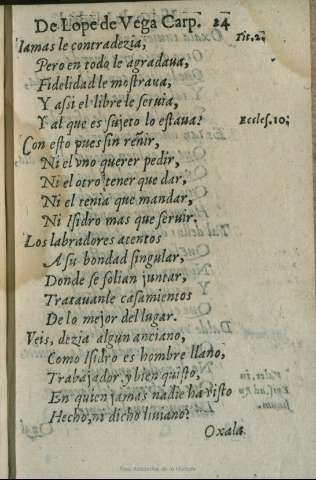 De Lope de Vega Carp. 24
Iamas le contradezia,
Tit. 2.
Pero en todo le agradaua,
Fidelidad le mostraua,
Y assi el libre le seruia,
Y al que es sujeto lo estaua?
Eccles. 10;
Con esto pues sin reñir,
Ni el vno querer pedir,
Ni el otro tener que dar,
Ni el tenia que mandar,
Ni Isidro mas que seruir.
Los labradores atentos
A su bondad singular,
Donde se solian juntar,
Tratauanle casamientos
De lo mejor del lugar.
Veis, dezia algun anciano,
Como Isidro es hombre llano,
Trabajador, y bien quisto,
En quien jamas nadie ha visto
Hecho, ni dicho liuiano?
Oxala.
Real Academia de la Historia